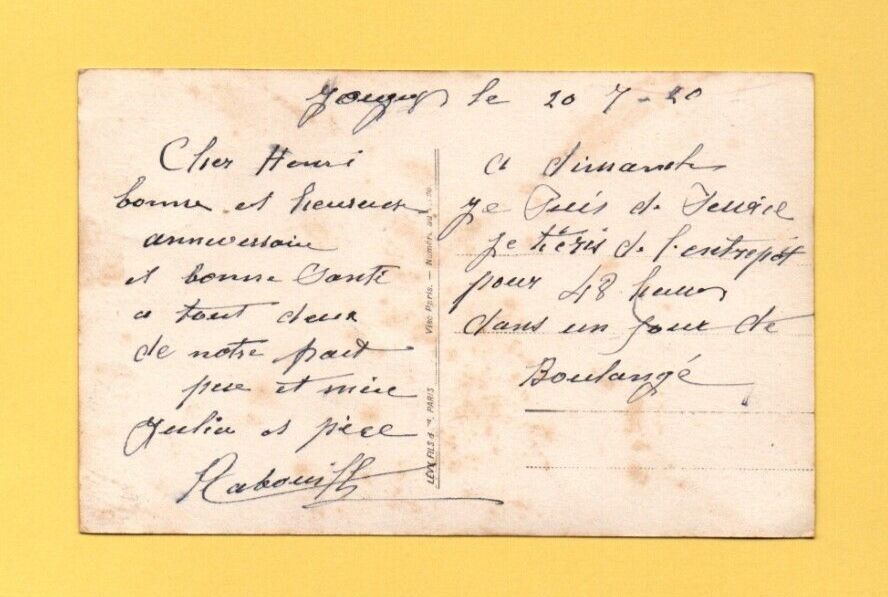 le 20 7-20
Cher Henri
bonne et heureuse
anniversaire
et bonne Santé
a tout deux
de notre part
pere et mère
Julia et pière
a dimanche
je Puis de
je tiéris de l'entrepôt
pour 48 heures
dans un jour de
Boulangé
LEVY FILS & Cie PARIS
Visé Paris. — Numéro au